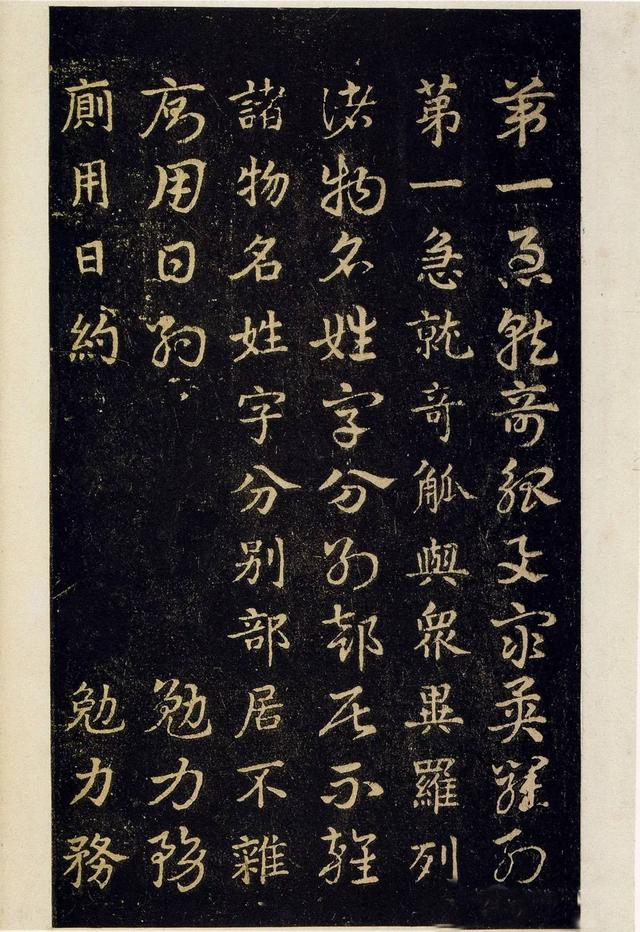 第一急就奇觚與衆異羅列
第一急就奇觚與衆異羅列
諸物名姓字分別部居不雜
諸物名姓字分別部居不雜
廁用日約 勉力務
廁用日約 勉力務